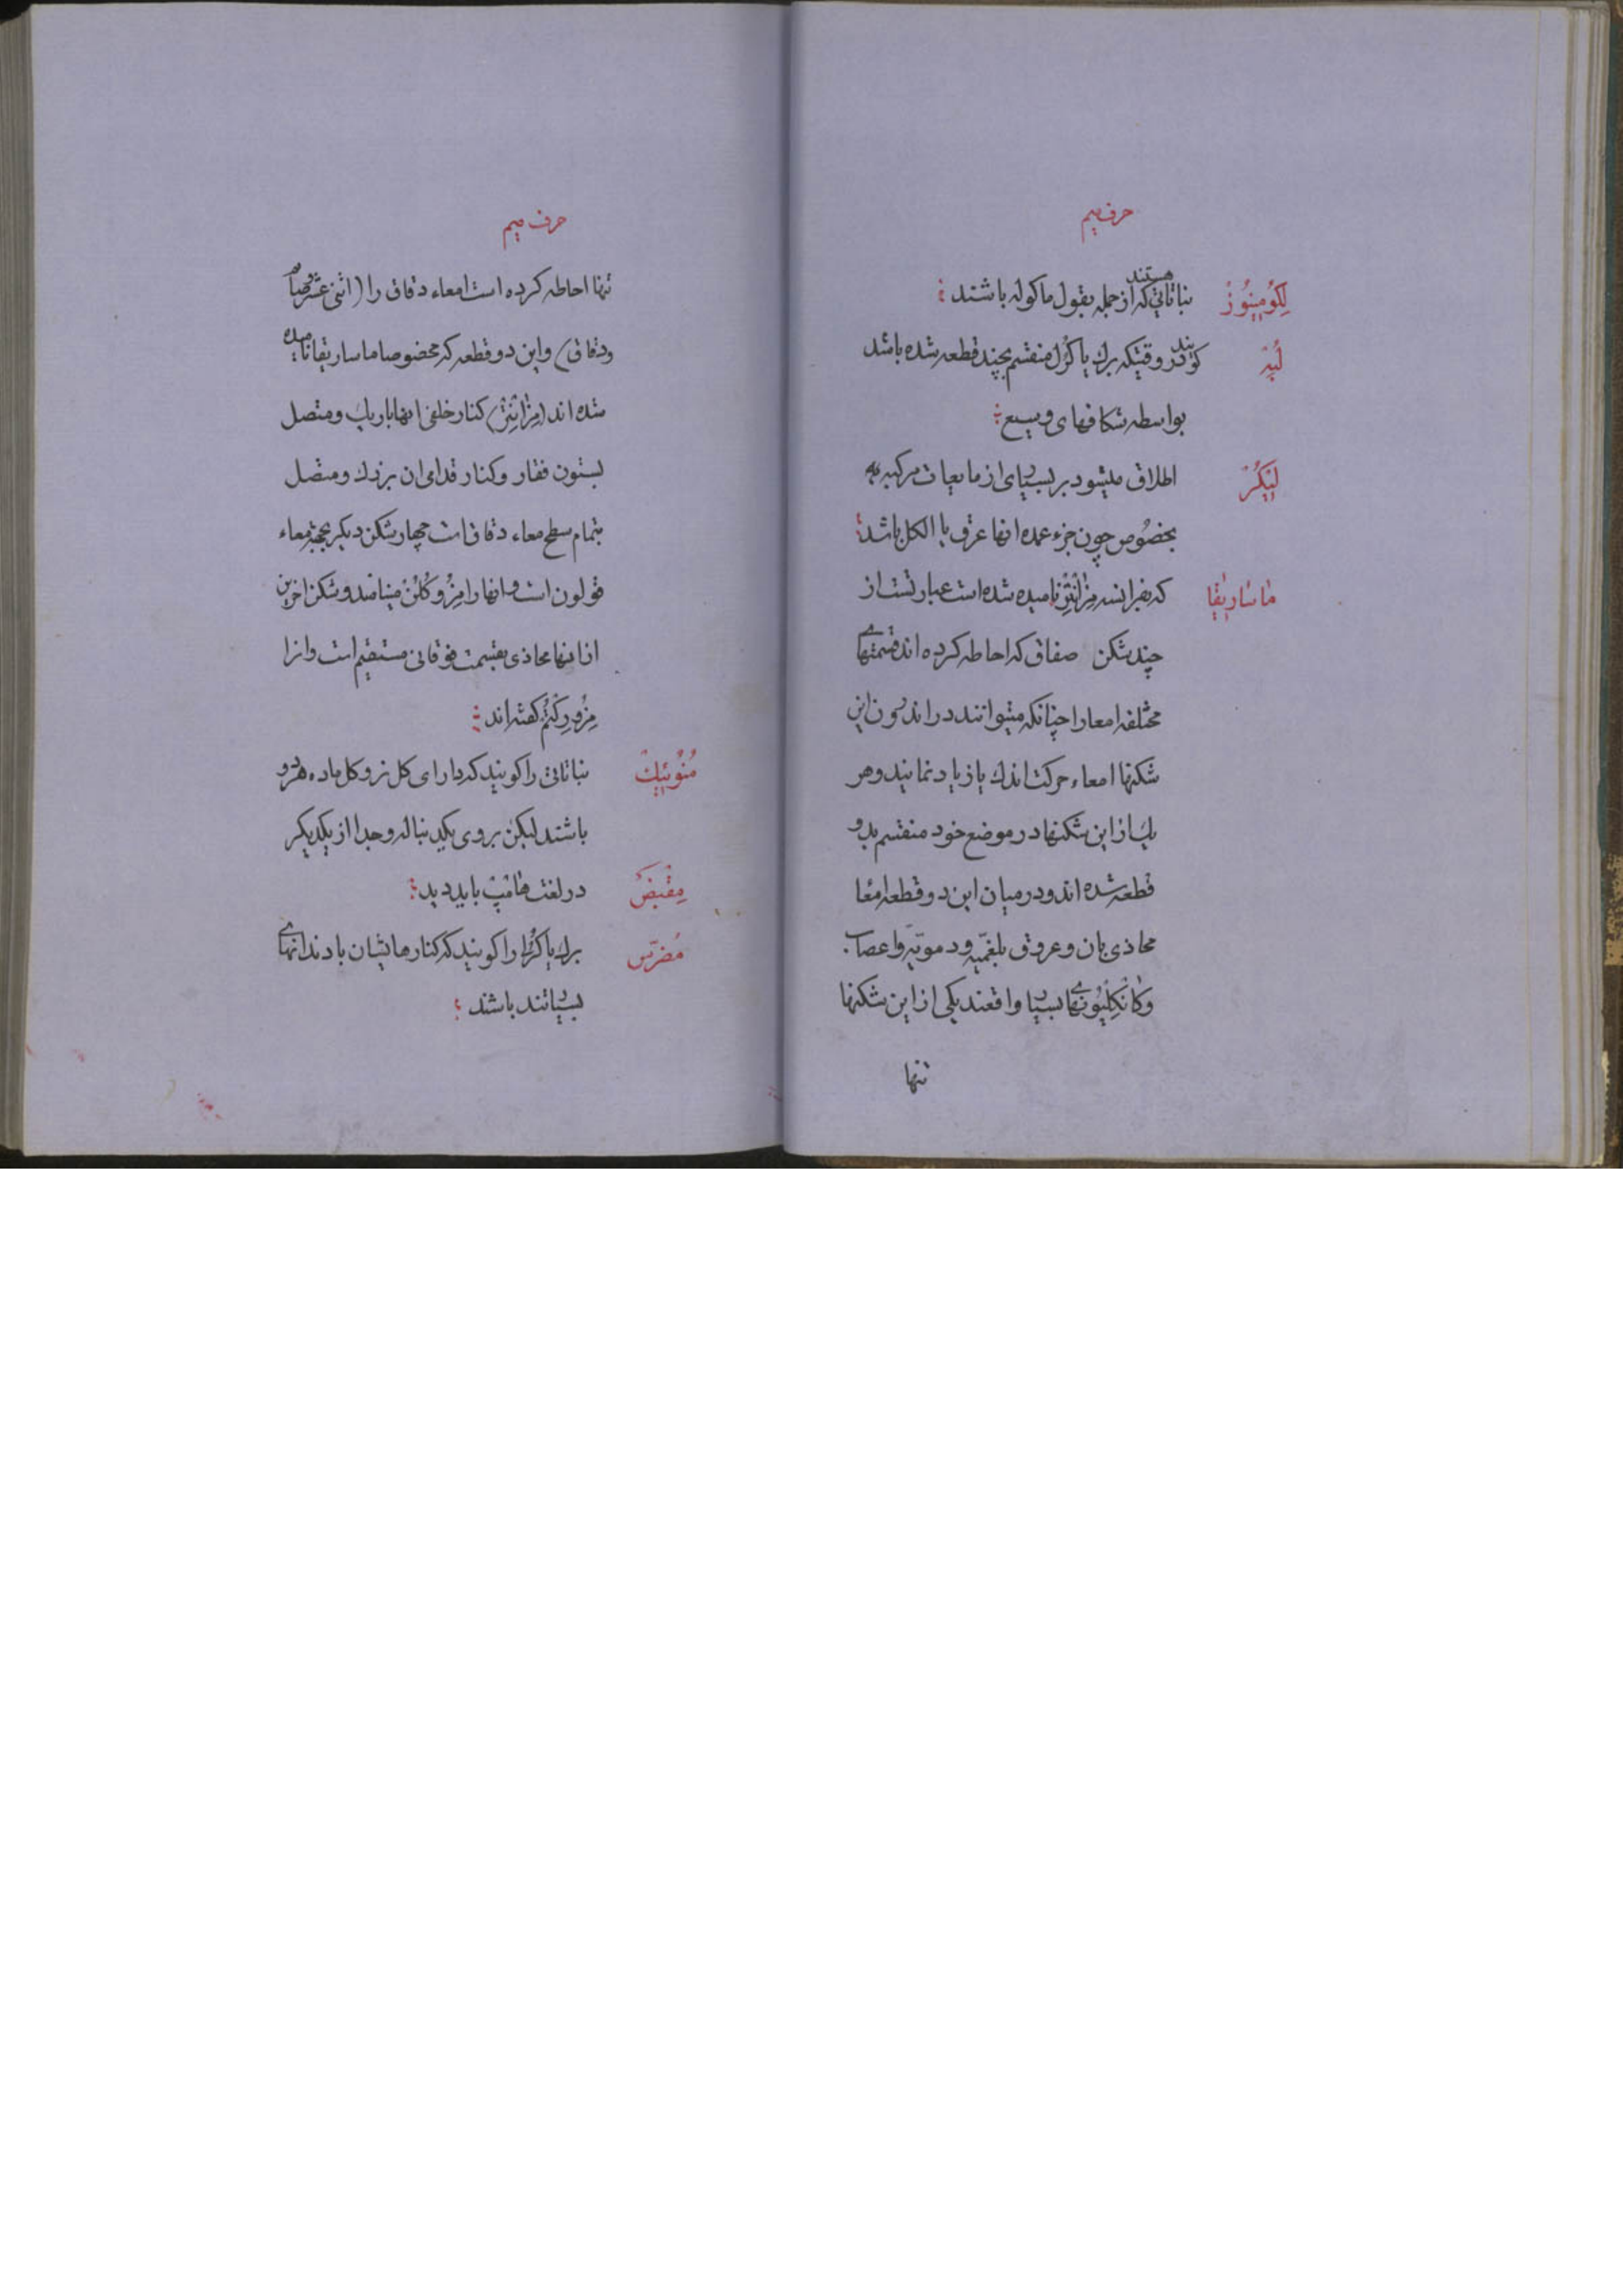 حرف میم
لِکُومِینُوزْ نباتاتی هستند که از جمله بقول ماکوله باشند
لُبِهْ کویند در وقتیکه برك یا کُرُل منقسم بچند قطعه شده باشد
بواسطه شکافهای وسیع
لِیکُرْ اطلاق میشود بر بسیاری از مایعات مرکبه
بخصُوص چون جزء عمده انها عرق یا الکل باشد
ماساریقا که بفرانسه مِزانتِرْ نامیده شده است عبارتست از
چند شکن صفاق که احاطه کرده اند قسمتهای
مختلفه امعا را چنانکه میتوانند در اندرون این
شکنها امعاء حرکت اندك یا زیاد نمایند و هر
یك از این شکنها در موضع خود منقسم بدو
قطعه شده اند و در میان این دو قطعه امعا
محاذی بان و عروق بلغمیّه و دمویّه و اعصاب
و کانکلیُونهای بسیار واقعند یکی از این شکنها
تنها
حرف میم
تنها احاطه کرده است امعاء دقاق را (اثنی عشر و صایم
و دقاق) و این دو قطعه که مخصوصا ماساریقا نامیده
شده اند (مِزانتِرْ) کنار خلفی انها باریك و متصل
بستون فقار و کنار قدامی ان بزرك و متصل
بتمام سطح معاء دقاق است چهار شکن دیکر بجهة معاء
قولون است و انها را مِزُوکُلُنْ مینامند و شکن اخرین
از انها محاذی بقسمت فوقانی مستقیم است و انرا
مِزُورِکتُم کفته اند
مُنُوئیِك نباتاتی را کویند که دارای کل نر و کل ماده هر دو
باشند لیکن بر روی یکدنباله و جدا از یکدیکر
مِقْبَضْ در لغت هامْپْ باید دید
مُضرّس برك یا کُرُل را کویند که کنارهایشان با دندانهای
بسیار تند باشند